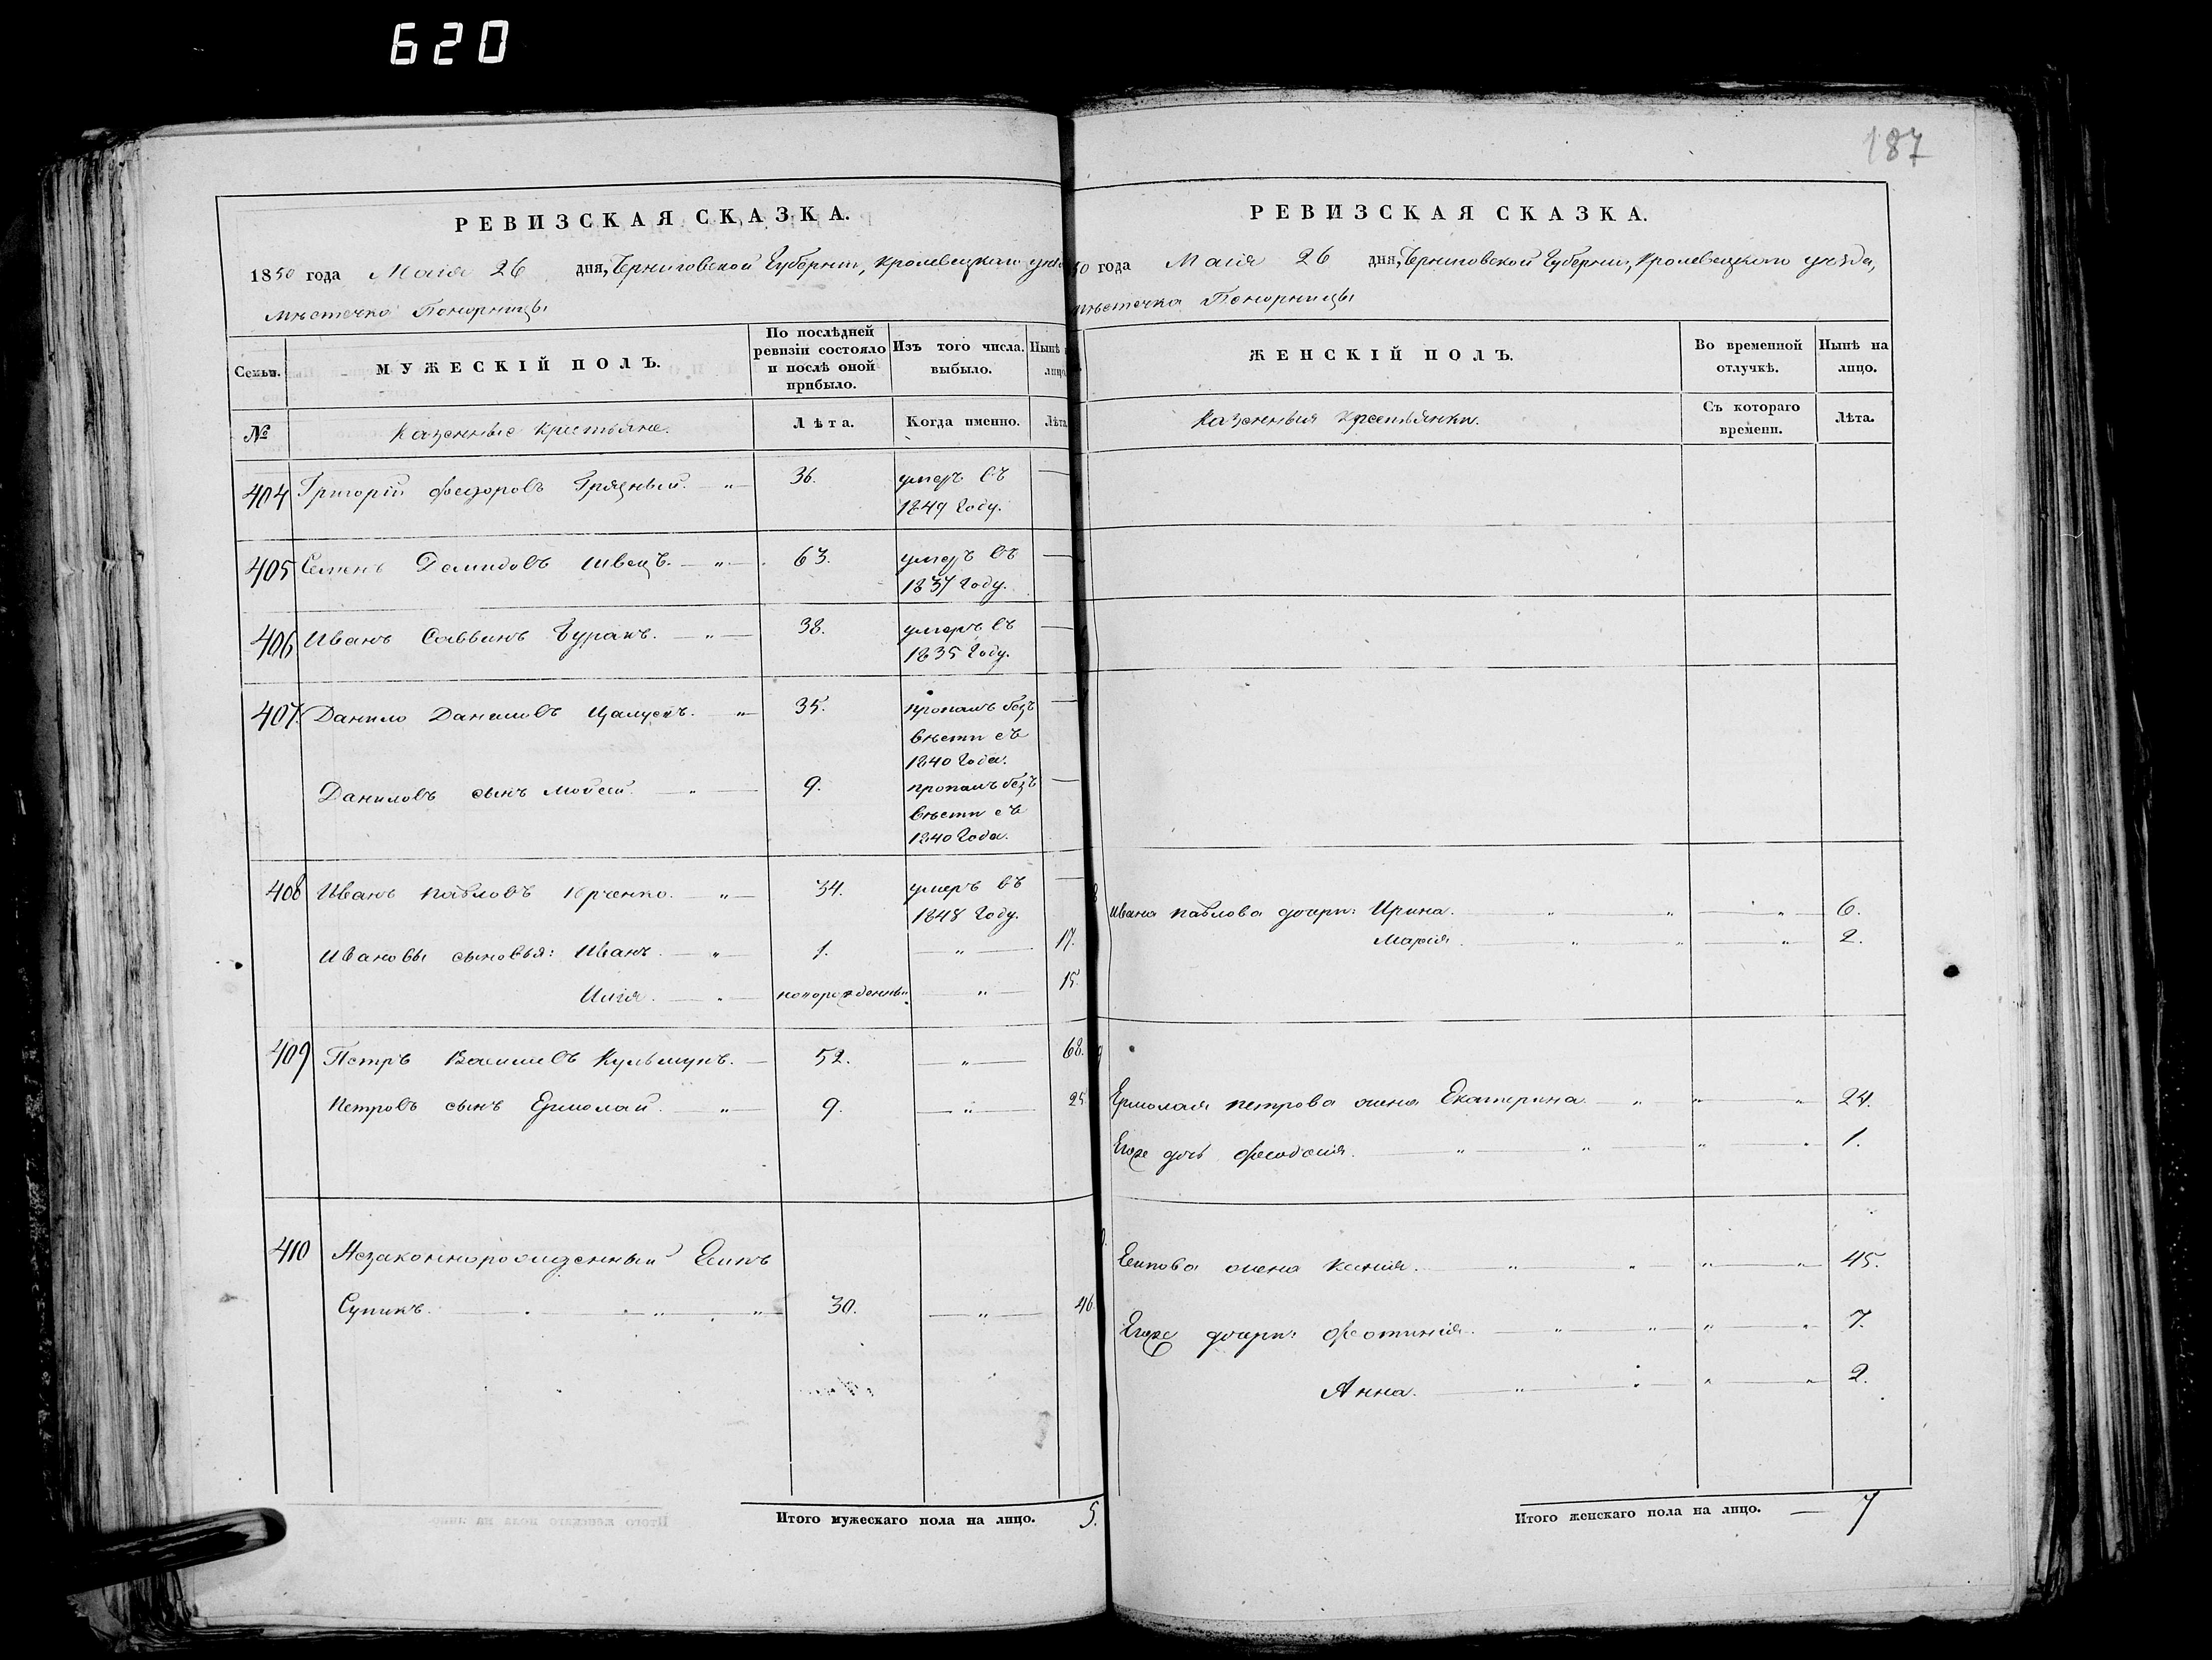 620
187
РЕВИЗСКАЯ СКАЗКА.
1850 года Маія 26 дня, Черниговской Губерніи, Кролевецкаго уѣз
мѣстечка Понорницы
Семьи.
МУЖЕСКІЙ ПОЛЪ.
По послѣдней ревизіи состояло и послѣ оной прибыло.
Изъ того числа выбыло.
Нынѣ лицо
№
Казенные крестьяне.
Лѣта.
Когда именно.
Лѣта
404 Григорій Федоровъ Грязный. — " — 36. умеръ въ —
1849 году.
405 Семенъ Демидовъ Швецъ. — " — 63. умеръ въ —
1837 году.
406 Иванъ Саввинъ Буракъ. — " — 38. умеръ въ —
1835 году.
407. Данило Даниловъ 35. пропалъ безъ —
вѣсти съ
1840 года.
Даниловъ сынъ Мойсей. — " — 9. пропалъ безъ —
вѣсти съ
1840 года.
408 Иванъ Павловъ Юрченко. " — 34. умеръ въ —
1848 году.
Ивановы сыновья: Иванъ. — " — 1. — " — 17.
Илія. — " — новорожденный — " — 15.
409 Петръ Васильевъ — 52. — " — 68.
Петровъ сынъ Ермолай. " — 9. — " — 25
410 Незаконнорожденный Есипъ
Супикъ. — " — " — 30. — " — 46.
Итого мужескаго пола на лицо. 5.
РЕВИЗСКАЯ СКАЗКА.
50 года Маія 26 дня, Черниговской Губерніи, Кролевецкаго уѣзда,
мѣстечка Понорницы
ЖЕНСКІЙ ПОЛЪ.
Во временной отлучкѣ.
Нынѣ на лицо.
Казенныя крестьянки.
Съ котораго времени.
Лѣта.
Ивана Павлова дочери: Ирина. — " — " — " — 6.
Марія. — " — " — " — 2.
Ермолая Петрова жена Екатерина — " — " — " 24.
Егоже дочь Феодосія. — " — " — " — " 1.
Есипова жена Ксенія. — " — " — " — " 45.
Егоже дочери: Фотинія. — " — " — " — " 7.
Анна. — " — " — " — " 2.
Итого женскаго пола на лицо. — 7